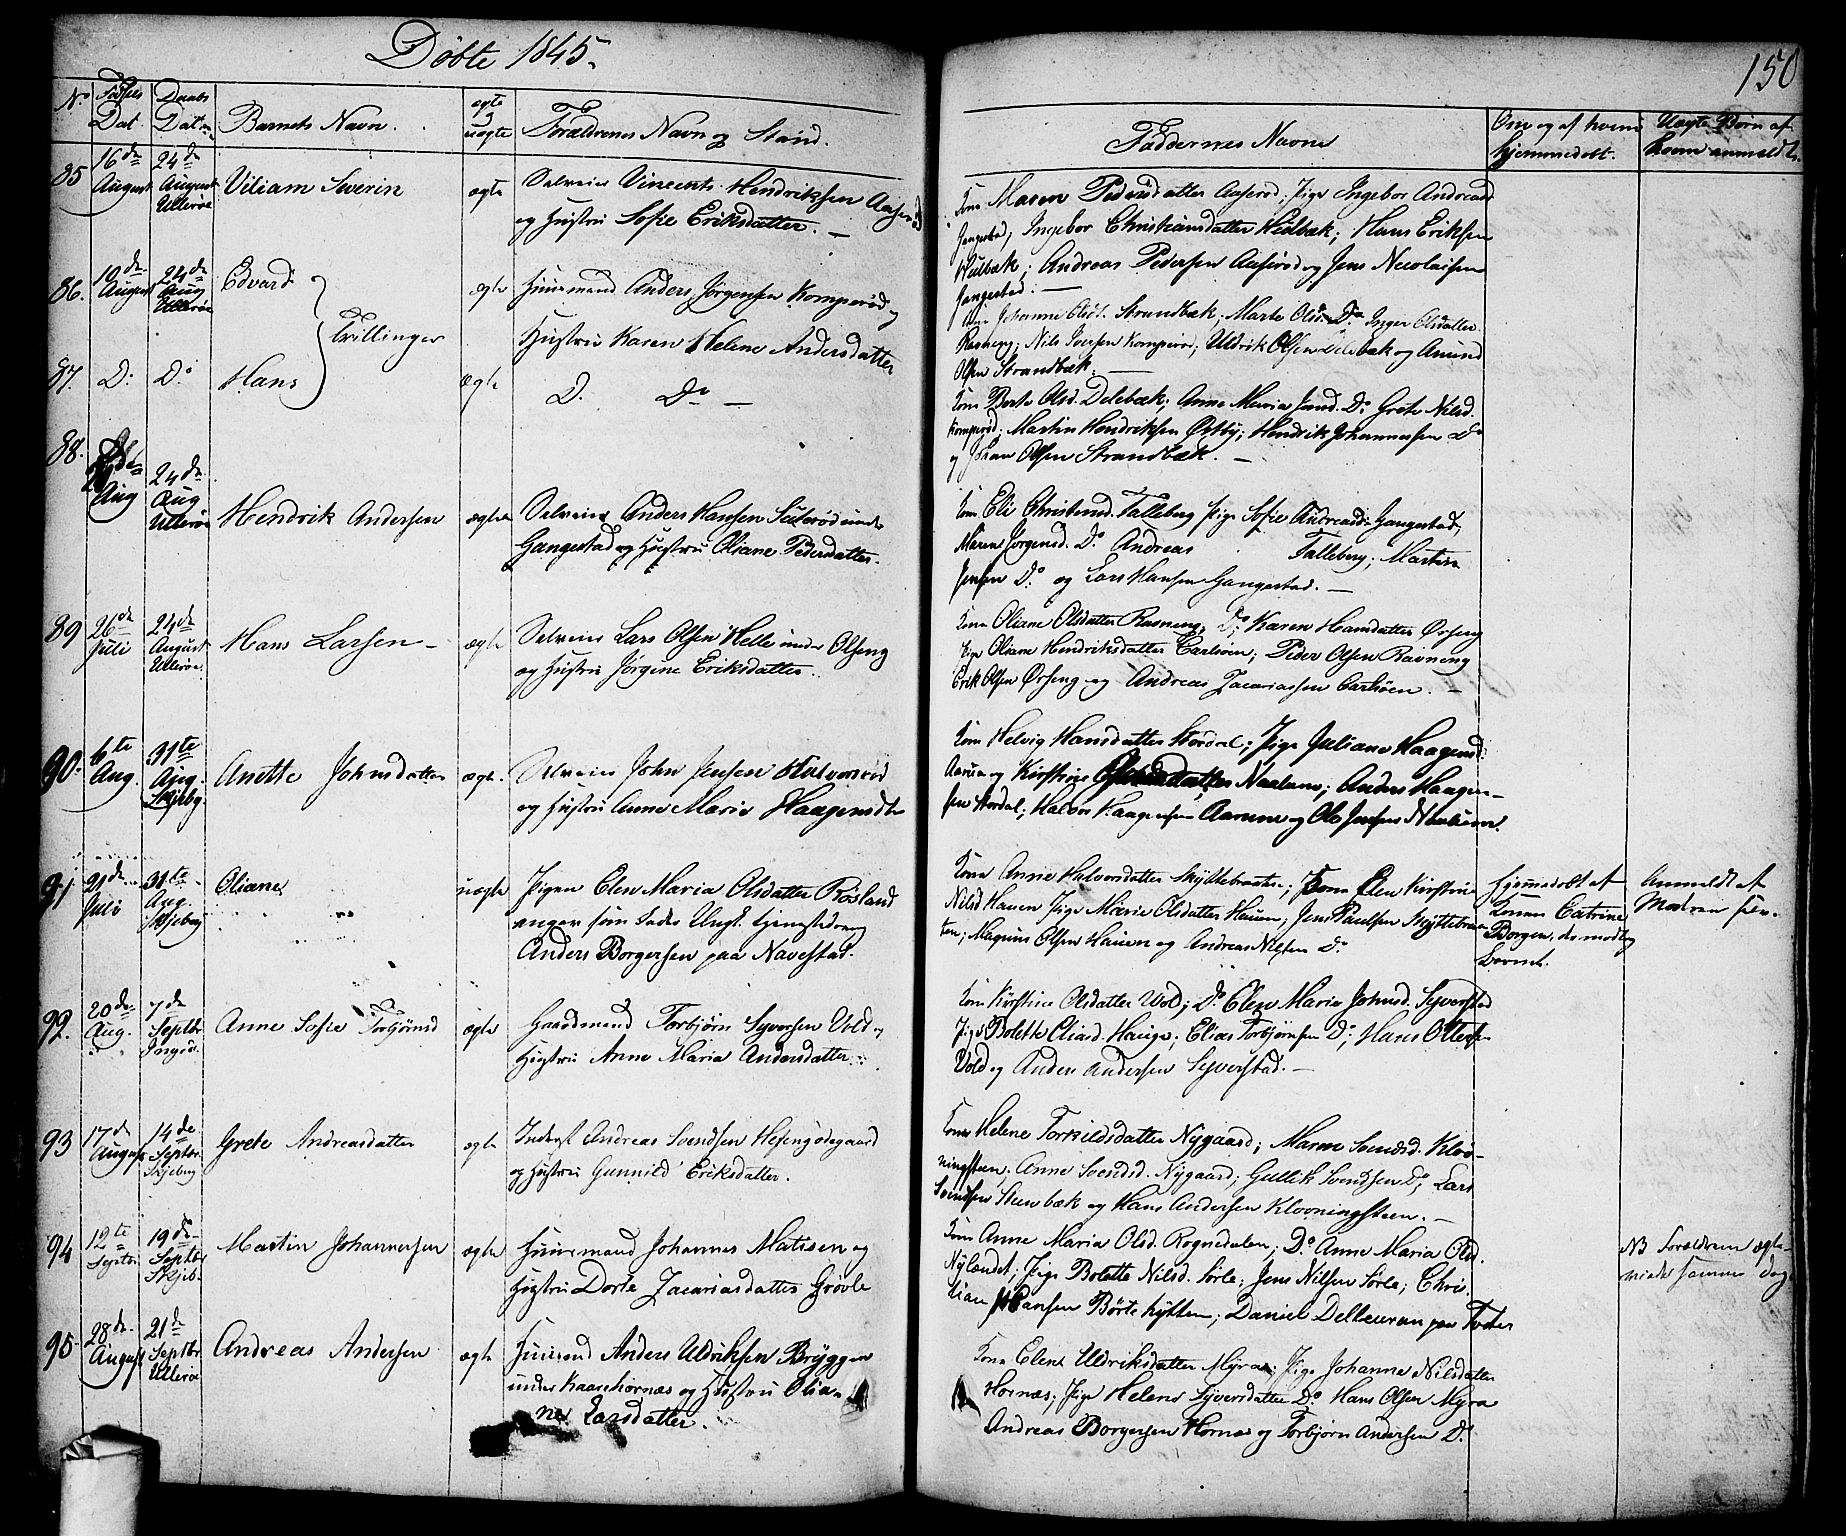 Döbte 1845.
150
No
Dat.
Daabs Dat
Barnets Navn.
ægte
uægte
Forældrenes Navn og Stand.
Faddernes Navne
Om og af hvem
hjemmedøbt.
Uægte Børn af
hvem anmeldt.
85
16de
August
24de
August
Ullerøe
Viliam Severin
ægte
Selveier Vincents Hendriksen
og Hustru Sofie Eriksdatter. —
Kone Maren Pedersdatter Aaserød; Pige Ingebor Andreasd
Ingebor Christiansdatter Hvidbæk; Hans Eriksen
Andreas Pedersen Aaserød og Jens Nicolaisen
Gangestad. —
86.
10de
August
24de
Aug
Ullerøe
Edvard
Tvillinger
ægte
Huusmand Anders Jörgensen Komperød og
Hustru Karen Helene Andersdatter
Kone Johanne Olsd. Strandbæk; Marte Olsd. Do Inger Olsdatter
Ravneng; Nils Iversen Komperød; Uldrik Olsen Delebæk og Amund
Olsen Strandbæk. —
87.
D:
Do
Hans
ægte
D. Do —
Kone Berte Olsd. Delebæk; Anne Maria Do Grete Nilsd.
Komperød. Martin Hendriksen Østby; Hendrik Johannesen Do
og Johan Olsen Strandbæk. —
88.
Aug
24de
Aug
Ullerøe
Hendrik Andersen
ægte
Selveier Anders Hansen under
Gangestad og Hustru Oliane Pedersdatter.
Kone Eli Christensd. Talleberg Pige Sofie Andreasd: Gangestad,
Maren Jörgensd. Do Andreas Talleberg; Martin
Jensen Do og Lars Hansen Gangestad. —
89
26de
Juli
24de
August
Ullerøe.
Hans Larsen —
ægte
Selveier Lars Olsen Helle under Olseng
og Hustru Jörgine Eriksdatter.
Kone Oliane Olsdatter Ravneng; Do Karen Hansdatter Ørseng
Pige Oliane Hendriksdatter Carlsöen; Peder Olsen Ravneng
Erik Olsen Ørseng og Andreas Zacariassen Carlsöen. —
90.
6te
Aug.
31te
Aug.
Skjebg.
Anette Johnsdatter
ægte.
Selveier John Jensen Halvorsrød
og Hustru Anne Marie Haagensdtr
Kone Helvig Hansdatter Stordal; Pige Juliane Haagensd:
Aarum og Kirstine Nalum; Anders Haagen-
sen Stordal; Halvor Haagensen Aarum og Ole Jensen Nalum.
91
21de
Juli
31te
Aug.
Skjeberg
Oliane
uægte
Pigen Elen Maria Olsdatter Røsland
angav som Fader Ungk.
Anders Borgersen paa Navestad.
Kone Anne Halvorsdatter Skyttebraaten; Kone Elen Kirstine
Nilsd Hauen Pige Marie Olsdatter Hauen; Jens Paulsen Skyttebraa-
ten; Magnus Olsen Hauen og Andreas Nilsen Do
Hjemmedøbt af
Konen Catrine
Borgen, der modtog
Barnet.
Anmeldt af
Moderen selv.
92.
20de
Aug.
7de
Septbr
Inged.
Anne Sofie Torbjörnsd
ægte
Gaardmand Torbjörn Syversen Vold og
Hustru Anne Maria Andersdatter.
Kone Kirstine Olsdatter Vold; Do Elen Maria Johnsd. Syverstad
Pige Bolette Eliasd. Hauge; Elias Torbjörnsen Do; Hans Ottersen
Vold og Anders Andersen Syverstad. —
93
17de
August
14de
Septbr.
Skjeberg
Grete Andreasdatter
ægte
Inderst Andreas Svendsen Hesengødegaard
og Hustru Gunnild Eriksdatter.
Kone Helene Torkildsdatter Nygaard; Maren Svendsd. Klöv-
ningsteen; Anne Svendsd. Nygaard; Gullik Svendsen Do; Lars
Svendsen Steenbæk og Hans Andersen Klovningsteen. —
94
12te
Septbr
19de
Septbr
Skjeb.
Martin Johannesen
ægte
Huusmand Johannes Matisen og
Hustru Dorte Zacariasdatter Grövle
Kone Anne Maria Olsd. Rognedalen; Do Anne Maria Olsd.
Nylandet; Pige Bolette Nilsd. Sörle; Jens Nilsen Sörle; Chris-
tian Hansen Börtehytten; Daniel Delleuran paa
NB Forældrene ægte-
viede samme Dag
95.
28de
August
21de
Septbr
Ullerøe
Andreas Andersen
ægte
Huusmd Anders Uldriksen Bryggen
under Kaarehornæs og Hustru Olia-
ne Larsdatter.
Kone Elene Uldriksdatter Myra; Pige Johanne Nilsdatter
Hornæs; Pige Helene Syversdatter Do Hans Olsen Myra
Andreas Borgersen Hornæs og Torbjörn Andersen Do